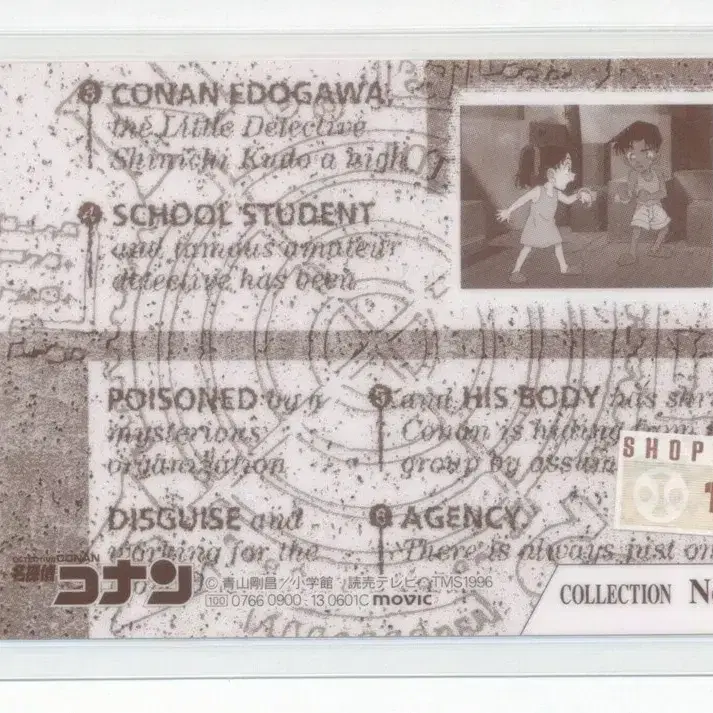 3 CONAN EDOGAWA,
the Little Detective
Shinichi Kudo a high
4 SCHOOL STUDENT
and famous amateur
detective has been
POISONED by a
mysterious
organization
5 and HIS BODY has shr
Conan is hiding from
group by assum
DISGUISE and
working for the
6 AGENCY.
There is always just on
SHOP
CONAN
名探偵
コナン
©青山剛昌/小学館・読売テレビ・TMS1996
100 0766 0900-13 0601C movic
COLLECTION No